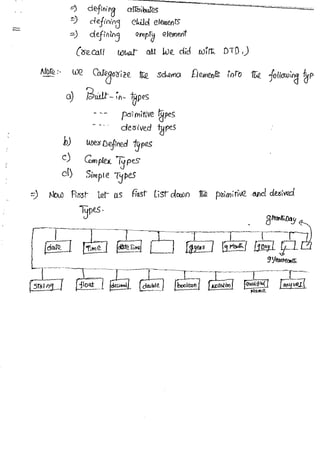 =) defining attributes
=) defining child elements
=) defining empty element
(recall what all we did with DTD.)
Note:- we Categorize the schema Elements into the following typ
a) Built-in-types
--- primitive types
--- derived types
b) user Defined types
c) Complex Types
d) Simple Types
=) Now First let us first list down the primitive and derived
Types.
gMonthDay
date Time date time gyear gMonth gDay
gYearMonth
String float decimal double boolean notation anyURI